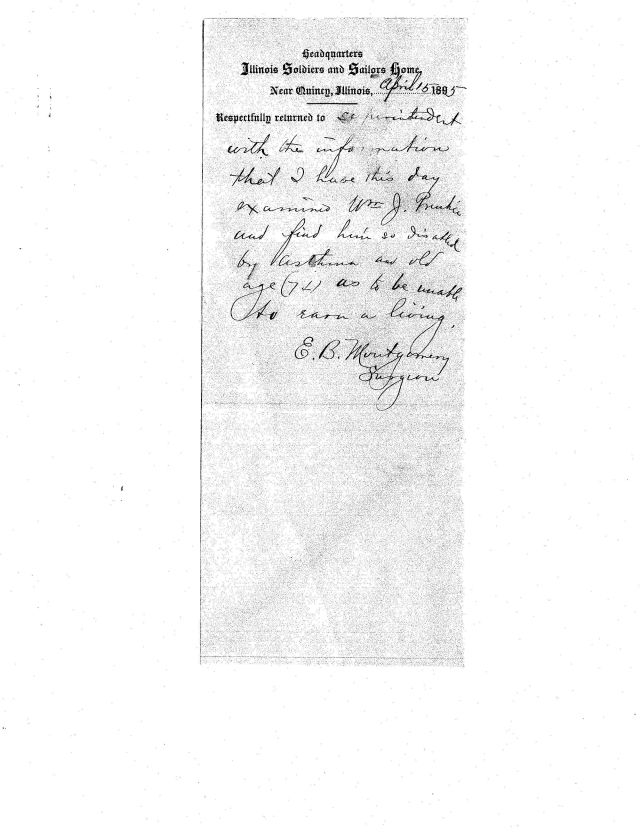 Headquarters
Illinois Soldiers and Sailors Home,
Near Quincy, Illinois, April 15 1895
Respectfully returned to Superintendent
with the information
that I have this day
examined Wm J.
and find him so disabled
by asthma and old
age (72) as to be unable
to earn a living.
E. B. Montgomery
Surgeon